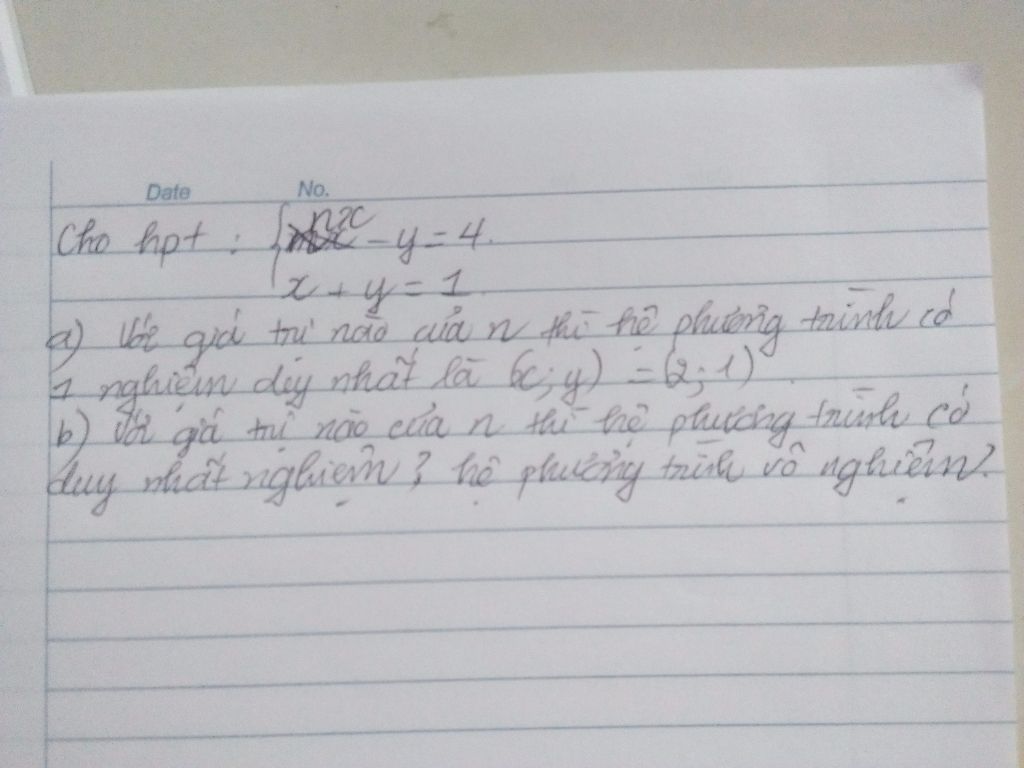 Date No.
Cho hpt : { nx - y = 4.
x + y = 1.
a) Với giá trị nào của n thì hệ phương trình có
1 nghiệm duy nhất là (x; y) = (2; 1).
b) Với giá trị nào của n thì hệ phương trình có
duy nhất nghiệm? hệ phương trình vô nghiệm?